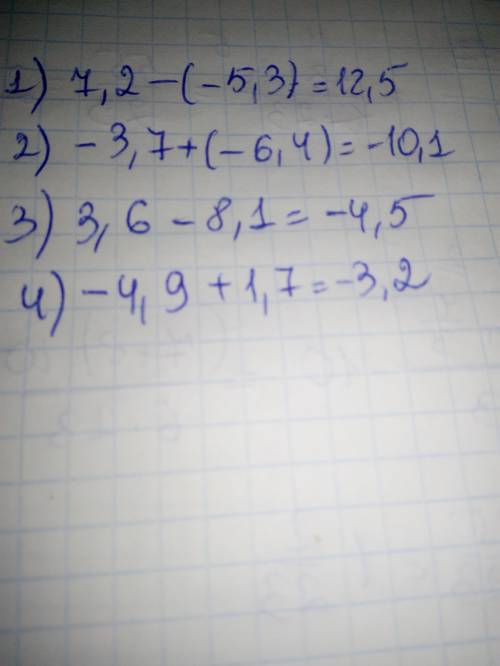 1) 7,2-(-5,3)=12,5
2) -3,7+(-6,4)=-10,1
3) 3,6-8,1=-4,5
4) -4,9+1,7=-3,2